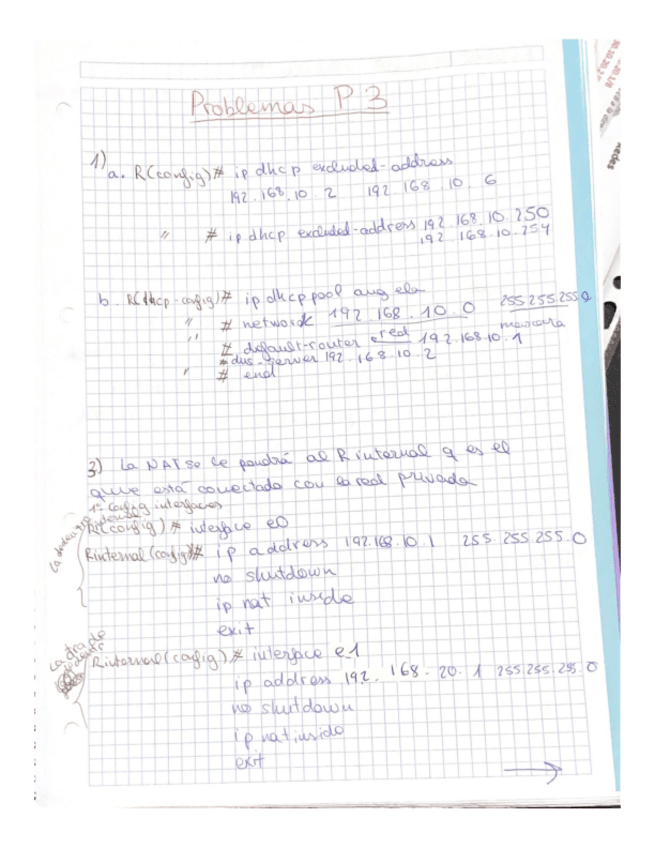 Problemas P 3
1) a. R(config)# ip dhcp excluded-address
192.168.10.2 192.168.10.6
" # ip dhcp excluded-address 192.168.10.250
192.168.10.254
b. R(dhcp-config)# ip dhcp pool angela
" # network 192.168.10.0 255.255.255.0
red mascara
" # default-router 192.168.10.1
# dns-server 192.168.10.2
" # end
3) La NAT se le pondrá al R internal q es el
que está conectado con la red privada
1º config interfaces
Ri(config)# interface e0
Rinternal(config)# ip address 192.168.10.1 255.255.255.0
no shutdown
ip nat inside
exit
La otra de
Rinternal(config)# interface e1
ip address 192.168.20.1 255.255.255.0
no shutdown
ip nat inside
exit